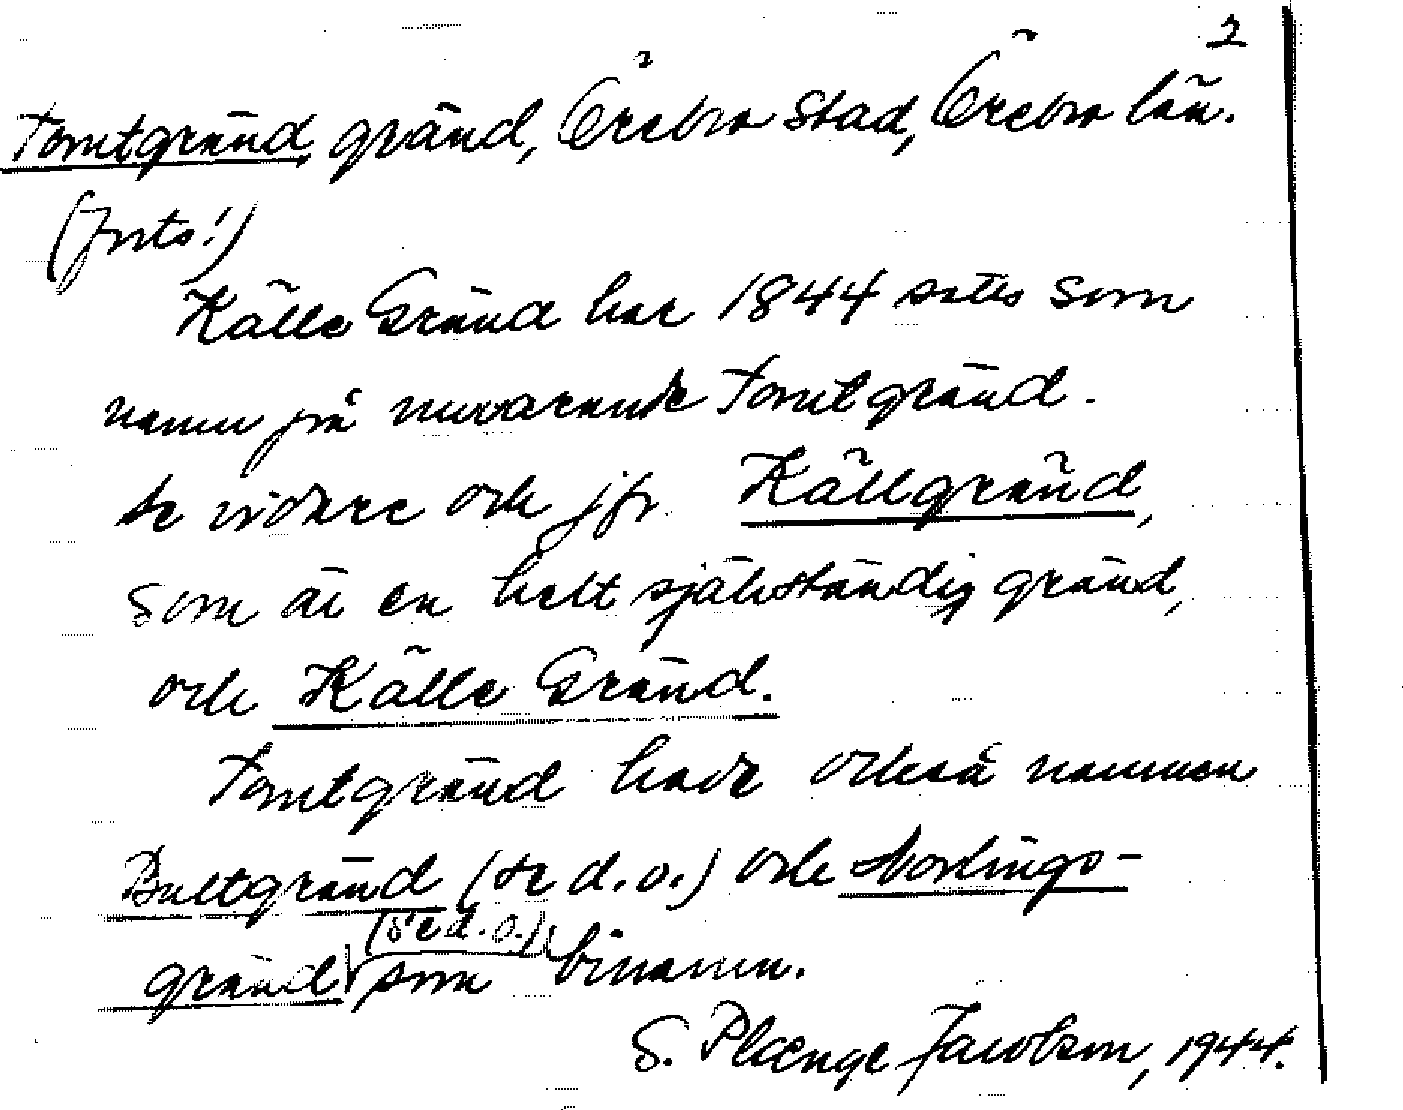 2
Tomtgränd, gränd, Örebro stad, Örebro län.
(forts!)
Källe Gränd har 1844 satts som
namn på nuvarande Tomtgränd.
Se vidare och jfr Källgränd,
som är en helt självständig gränd,
och Källe Gränd.
Tomtgränd hade också namnen
Bultgränd (se d.o.) och Norlings-
gränd (se d.o.) som binamn.
S. Plænge Jacobson, 1944.